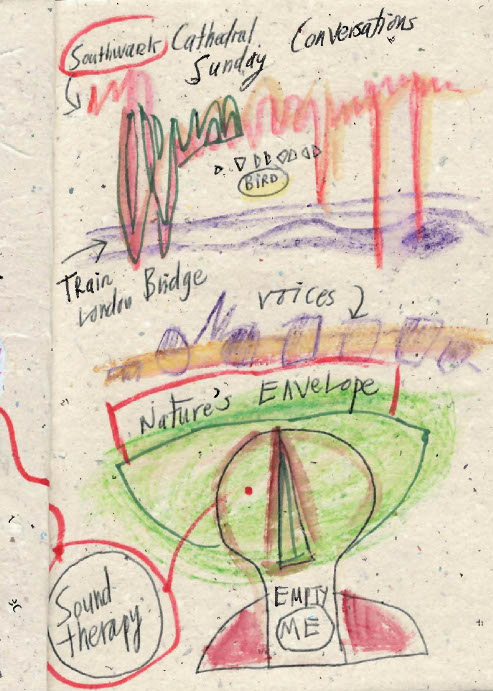 Southwark Cathedral
Sunday Conversations
BIRD
Train
London Bridge
voices
Nature's Envelope
Sound
therapy
EMPTY
ME